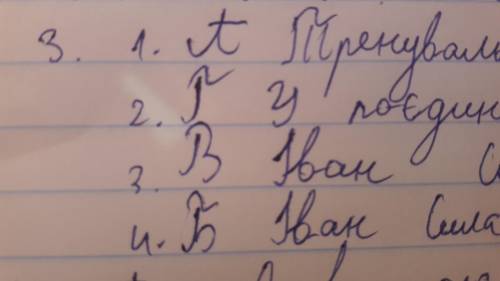 3. 1. А Тренуваль
2. Г У поєдин
3. В Іван С
4. Б Іван Сила